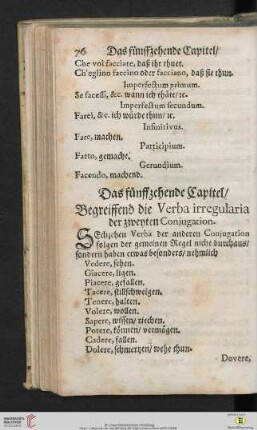 76 Das fünffzehende Capitel/
Che voi facciate, daß ihr thuet.
Ch'eglino faccino oder facciano, daß sie thun.
Imperfectum primum.
Se facessi, &c. wann ich thäte/ ꝛc.
Imperfectum secundum.
Farei, &c. ich würde thun/ ꝛc.
Infinitivus.
Fare, machen.
Participium.
Fatto, gemacht.
Gerundium.
Facendo, machend.
Das fünffzehende Capitel/
Begreiffend die Verba irregularia
der zweyten Conjugation.
SEchzehen Verba der anderen Conjugation
folgen der gemeinen Regel nicht durchaus/
sondern haben etwas besonders/ nehmlich
Vedere, sehen.
Giacere, ligen.
Piacere, gefallen.
Tacere, stillschweigen.
Tenere, halten.
Volere, wollen.
Sapere, wissen/ riechen.
Potere, können/ vermögen.
Cadere, fallen.
Dolere, schmertzen/ wehe thun.
Dovere,